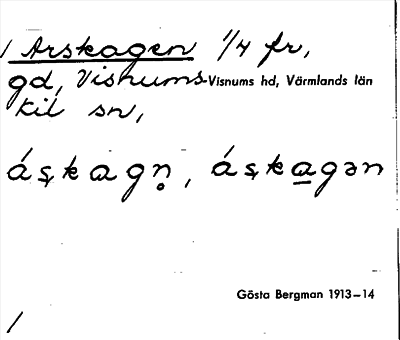 / Arskagen 1/4 fr,
gd, Visnums- Visnums hd, Värmlands län
Kil sn,
áşkagn̥, áşka̲gən
Gösta Bergman 1913–14
/